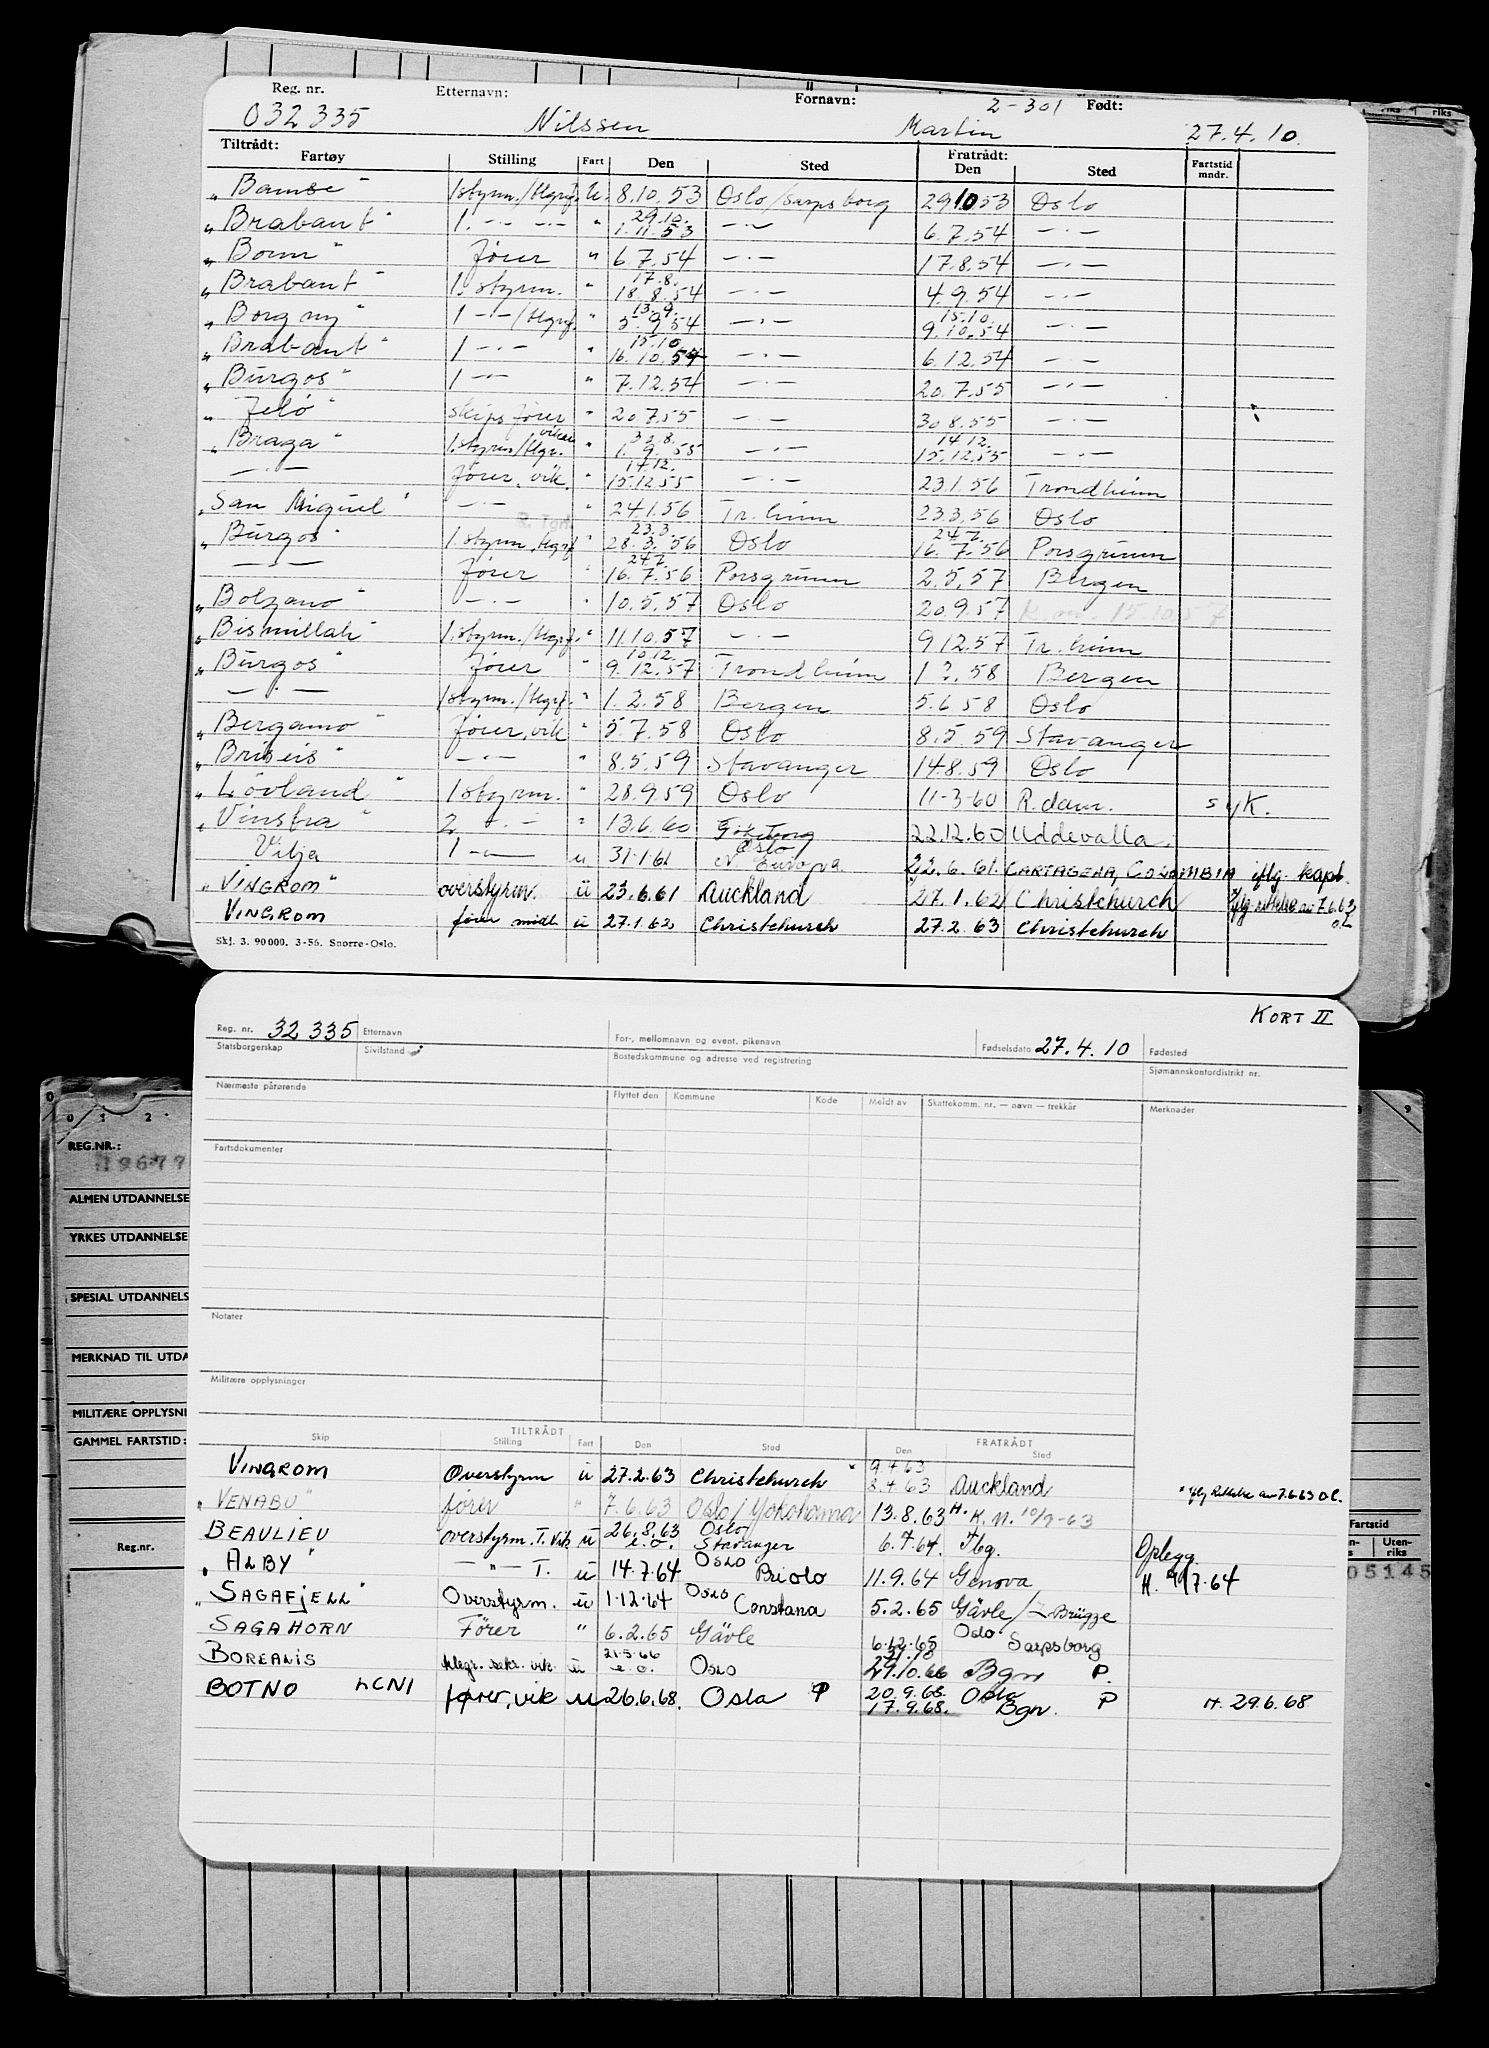 Reg. nr. Etternavn: Fornavn: 2-301 Født:
032335 Nilssen Martin 27.4.10.
Tiltrådt: Fratrådt:
Fartøy Stilling Fart Den Sted Den Sted Fartstid mndr.
„Bamse" 1styrm./tlgrf. U. 8.10.53 Oslo/Sarpsborg 29.10.53 Oslo
„Brabant" 1. -.- -.- " 29.10. 1.11.53 -.- 6.7.54 -.-
„Bonn" fører " 6.7.54 -.- 17.8.54 -.-
„Brabant" 1. styrm. " 17.8. 18.8.54 -.- 4.9.54 -.-
„Borgny" 1 -.-/tlgrf. " 13.9. 5.9.54 -.- 15.10. 9.10.54 -.-
„Brabant" 1 -.- " 15.10. 16.10.54 -.- 6.12.54 -.-
„Burgos" 1 -.- " 7.12.54 -.- 20.7.55 -.-
„Jelø" skipsfører " 20.7.55 -.- 30.8.55 -.-
„Braga" 1.styrm/tlgr. vikar " 30.8. 1.9.55 -.- 14.12. 15.12.55 -.-
-.- fører, vik. " 14.12. 15.12.55 -.- 23.1.56 Trondheim
„San Miguel" -.- " 24.1.56 Tr.heim 23.3.56 Oslo
„Burgos" 1.styrm. tlgrf " 23.3. 28.3.56 Oslo 24.7. 16.7.56 Porsgrunn
-.- fører " 24.7. 16.7.56 Porsgrunn 2.5.57 Bergen
„Bolzano" -.- " 10.5.57 Oslo 20.9.57
„Bismillah" 1.styrm./tlgrf. " 11.10.57 -.- 9.12.57 Tr.heim
„Burgos" fører " 10.12. 9.12.57 Trondheim 1.2.58 Bergen
-.- 1styrm./tlgrf. " 1.2.58 Bergen 5.6.58 Oslo
„Bergamo" fører, vik " 5.7.58 Oslo 8.5.59 Stavanger
„Briseis" -.- " 8.5.59 Stavanger 14.8.59 Oslo
„Lövland" 1styrm. " 28.9.59 Oslo 11-3-60 R.dam. syk.
„Vinstra" 2. -.- " 13.6.60 Göteborg 22.12.60 Uddevalla.
Vilja 1 -.- u 31.1.61 Oslo N. Europa. 22.6.61. CARTAGENA, COLOMBIA iflg. kapt.
„VINGROM" overstyrm. ü 23.6.61 Auckland 27.1.62 Christchurch iflg rettelse av 7.6.63 o.L
VINGROM fører midl. ü 27.1.62 Christchurch 27.2.63 Christchurch
Skj. 3. 90 000. 3-56. Snorre-Oslo.
KORT II
Reg. nr. 32 335 Etternavn For-, mellomnavn og event. pikenavn Fødselsdato 27.4.10 Fødested
Statsborgerskap Sivilstand Bostedskommune og adresse ved registrering Sjømannskontordistrikt nr.
Nærmeste pårørende Flyttet den Kommune Kode Meldt av Skattekomm. nr. — navn — trekkår Merknader
Fartsdokumenter
Notater
Militære opplysninger
TILTRÅDT FRATRÅDT
Skip Stilling Fart Den Sted Den Sted
VINGROM Overstyrm ü 27.2.63 Christchurch " 9.4.63 8.4.63 Auckland " iflg Rettelse av 7.6.63 o.L.
„VENABU" fører " 7.6.63 Oslo/Yokohama 13.8.63 H.K.N. 10/9-63
BEAULIEU overstyrm. T. Vik ü 26.8.63 e.o. Oslo Stavanger 6.7.64. Tbg. Oplegg.
„ALBY" -"- T. ü 14.7.64 OSLO Priolo 11.9.64 Genova H. 9/7.64
„SAGAFJELL" Overstyrm. ü 1.12.64 OSLO Constana 5.2.65 Gävle/Z-Brügge
SAGAHORN Fører " 6.2.65 Gävle 6.12.65 Oslo Sarpsborg
BOREALIS tlegr. sekr. vik. ü 21.5.66 e.o. Oslo 31.10 29.10.66 Bgn P
BOTNO LCNI fører, vik u 26.6.68. Oslo P 20.9.68. Oslo 17.9.68. Bgn. P H. 29.6.68
REG.NR.:
19677
ALMEN UTDANNELSE
YRKES UTDANNELSE
SPESIAL UTDANNELS
MERKNAD TIL UTDA
MILITÆRE OPPLYSNI
GAMMEL FARTSTID:
Reg.nr.
Fartstid
Uten-riks
05145